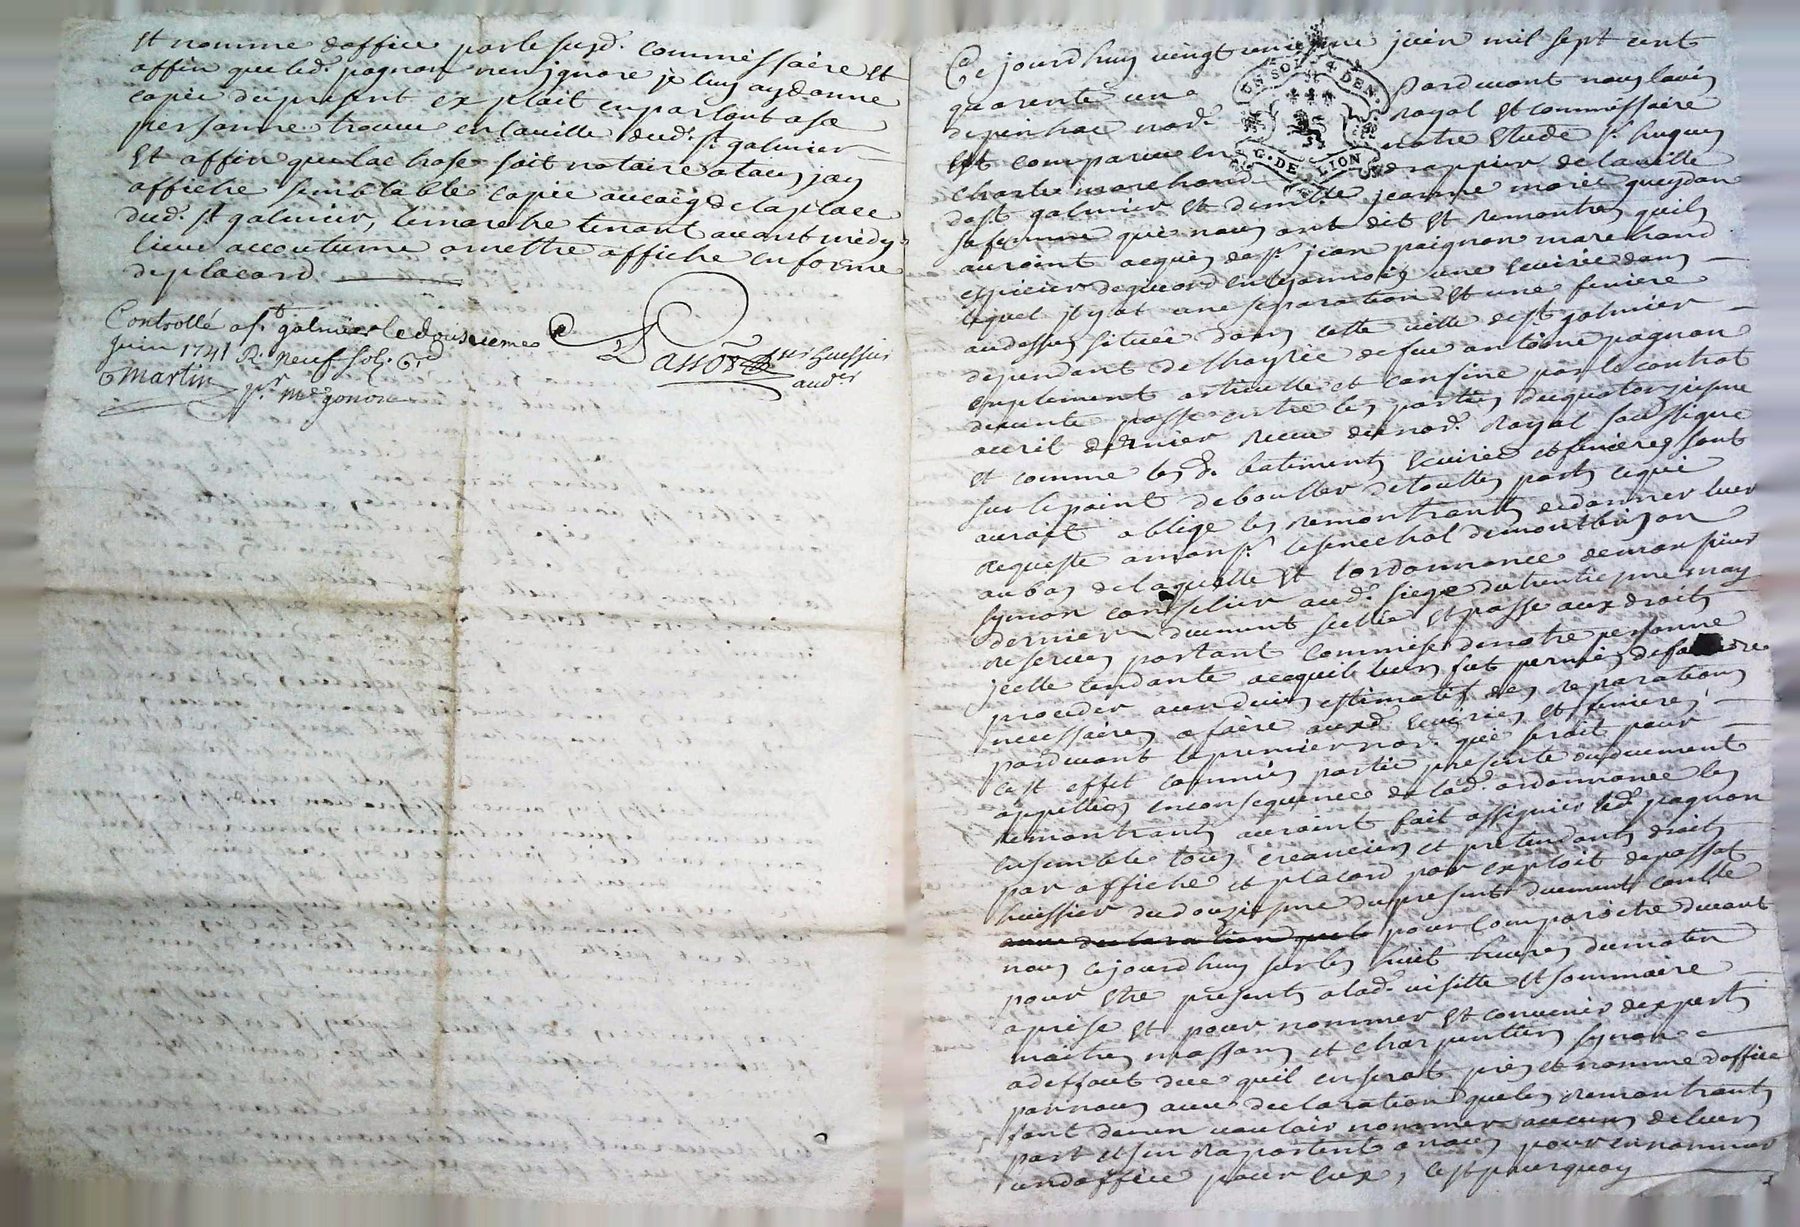 et nommé doffice par le susd. commissaire et
affin que led. pagnon nen ignore je luy ay donne
copie du present exploit en parlant a sa
personne trouvé en laville dud. st. galmier
Et affin que la chose soit notaire a tous jay
affiche semblable copie au coing de la place
dud. st galmier, le marche tenant avant midy
lieu accoutume a mettre affiche en forme
de placard
Controllé a st. galmier le dousieme
juin 1741 R. neuf sols 6 d
Martin pr. me gonon
Passot huissier
aud.
Ce jourdhuy vingt unieme juin mil sept cent
quarente un pardevant nous louis
depinhac nore. Royal et commissaire
est comparu en notre Etude sr. hugues
charles marchand drappier de la ville
de st galmier et demlle. jeanne marie gueydan
sa femme qui nous ont dit et remontres quils
auroint acquis de sr. jean paignon marchand
espicier de en lyonnois une ecuirie dans
lequel il y at une separation et une feniere
au dessus située dans cette ville de st galmier
dependant de lhoyrie de feu antoine pagnon
emplement articulle et confine par le contrat
de vente passé entre les parties du quatorzieme
avril dernier receu du nore. Royal soussigne
et comme les d. batiments ecuirie et fenieres sont
sur le point de boulles de touttes parts ce qui
auroit oblige les remontrants de donner leur
requeste a monsr. le senechal de montbrison
au bas de laquelle est lordonnance de monsieur
symon conseiller aud. siege du trentieme may
dernier duement scelle et passe aux droits
reserves portant commise de notre personne
jcelle tendante acequil leurs fut permis de faire
proceder a un devis estimatif des reparations
necessaires a faire auxd. ecuiries et fenieres
pardevant le premier nore. qui seroit pour
cest effet commis partie presente ou duement
appellés en consequence de lad. ordonnance les
remontrants auroint fait assigner led. pagnon
ensemble tous creanciers et pretendants droits
par affiche et placard par exploit de passot
huissier du douzieme du present duement conlle
pour comparoitre devant
nous ce jourdhuy sur les huit heures du matin
pour etre presents a lad. visitte et sommaire
aprise et pour nommer et convenir dexperts
maitres massons et charpentiers synon
a deffaut de ce quil en serat pris et nommé doffice
par nous avec declaration que les remontrants
sont de nen vouloir nommer aucuns de leurs
part et sen raportent a nous pour en nommer
un doffice pour eux, cest pourquoy